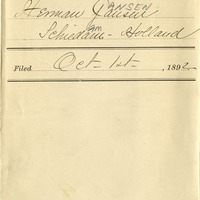 Herman Jansen
JANSEN
Schiedam - Holland
am
Filed Oct- 1st- , 1892